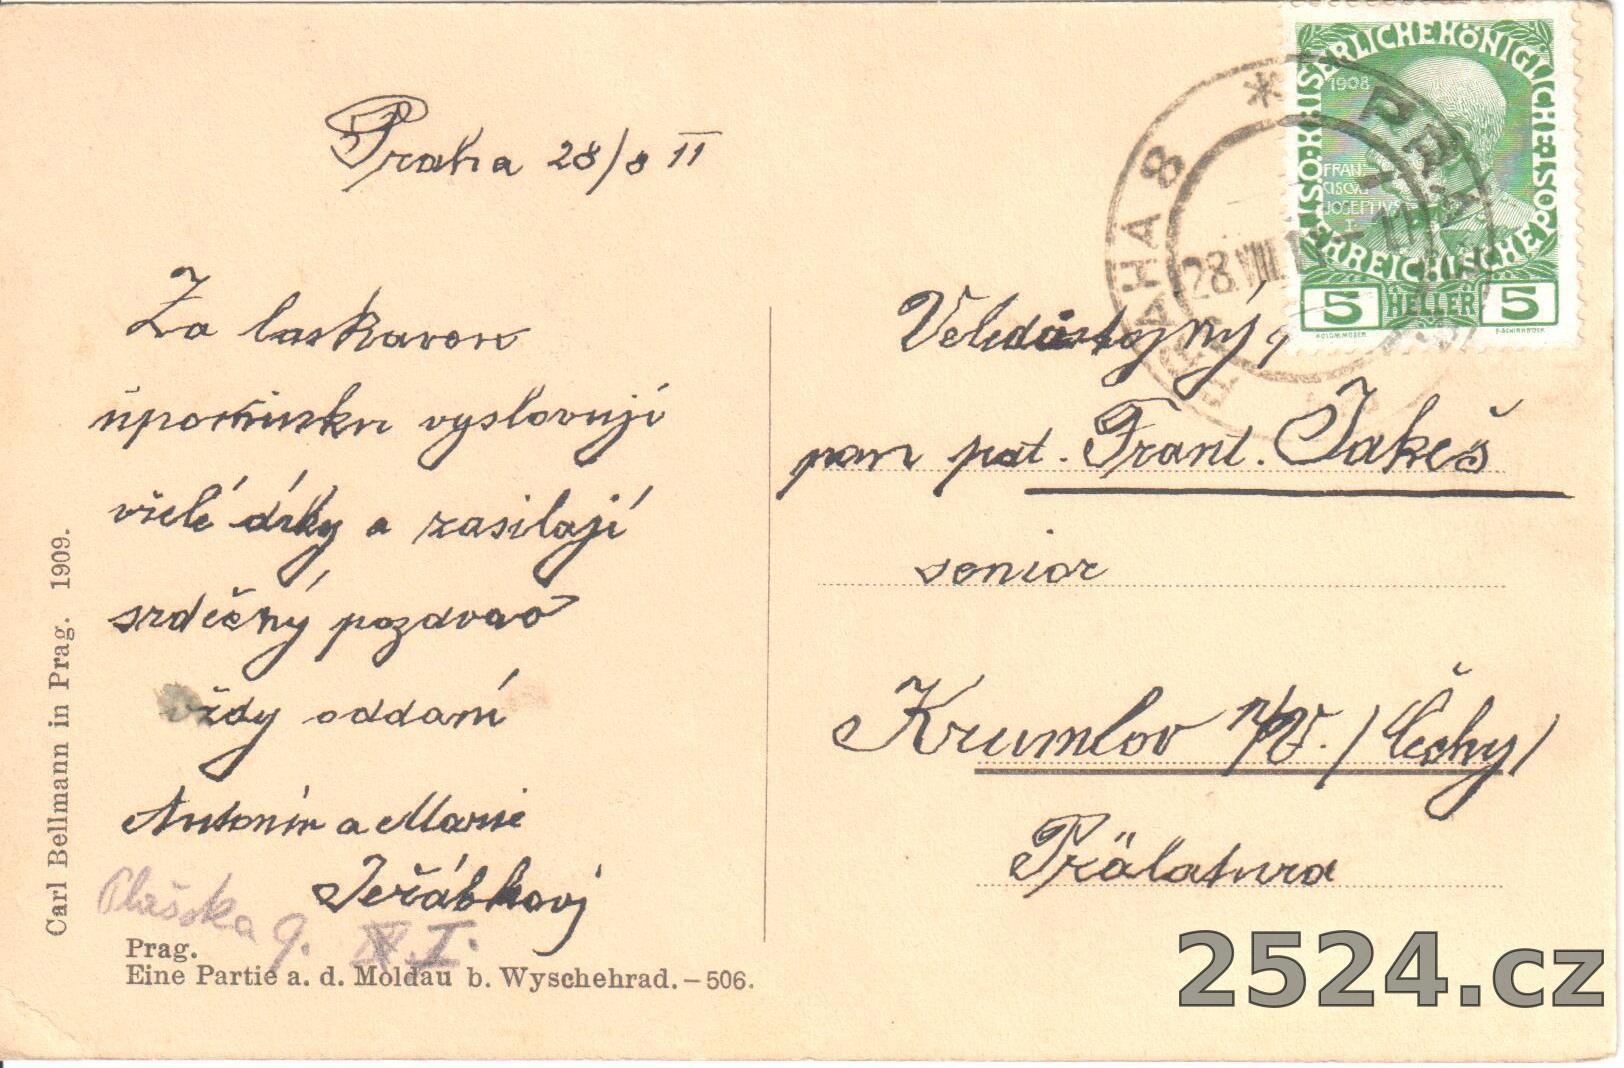 Praha 28/8 11
Za laskavou
upomínku vyslovují
vřelé díky a zasílají
srdečný pozdrav
vždy oddaní
Antonín a Marie
Jeřábkovi
Plašska 9.
Prag.
Eine Partie a. d. Moldau b. Wyschehrad. – 506.
Carl Bellmann in Prag. 1909.
KAISERLICHEKÖNIGLICHE ÖSTERREICHISCHE POST
1908
FRAN-
CISCVS
JOSEPHVS
I
5 HELLER 5
KOLOM.MOSER F.SCHIRNBÖCK
PRAHA 8 * PRAG
28.VIII.11
Veledůstojný
pan pat. Frant. Jakeš
senior
Krumlov n/V. / Čechy /
Prälatura
2524.cz